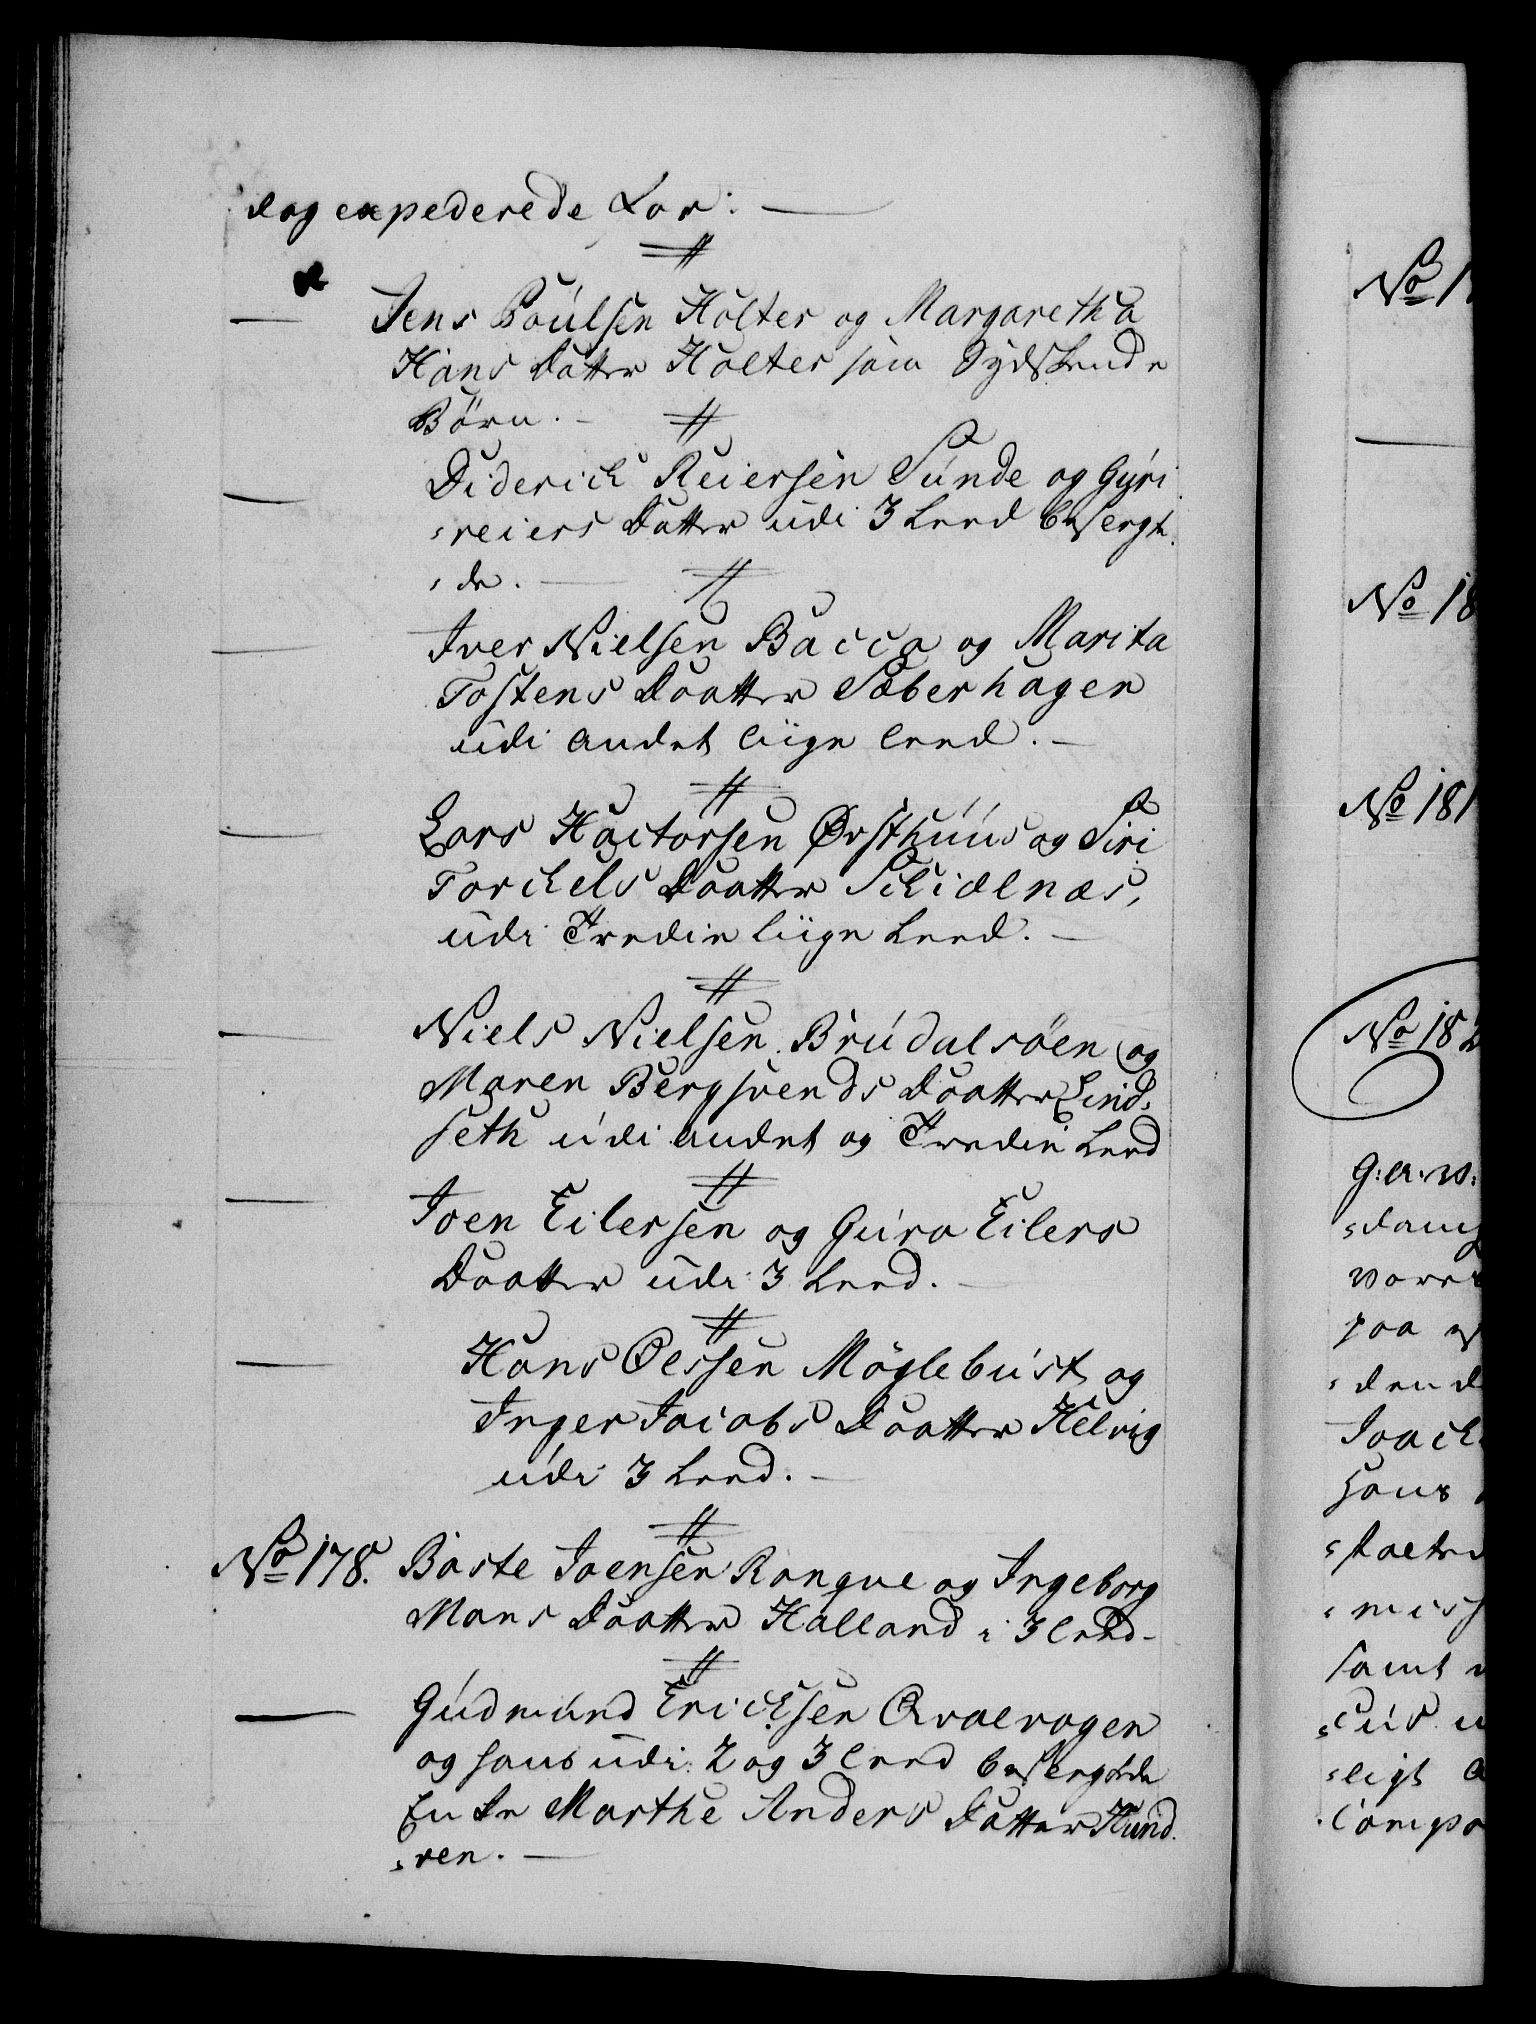 dag expederede for:
Jens Poúlsen Holter og Margaretha
Hans Datter Holter som Sydskende
Börn.
Diderich Reiersen Súnde og Gÿri
reiers Datter udi 3 Leed besvergte
de.
Iver Nielsen Bacca og Marita
Tostens Daatter Sæberhagen
udi andet liige Leed.
Lars Hactorsen Østhúús og Siri
Torckels Daatter Schiælnæs,
udi Tredie liige Leed.
Niels Nielsen Brúdalsöen og
Maren Bergsvends Daatter Lind,
seth údi andet og Tredie Leed
Joen Eilersen og Gúro Eilers
Daatter udi 3 Leed.
Hans Olssen Möglebúst og
Inger Jacobs Daatter Helvig
údi 3 Leed.
No 178. Baste Joensen Rongve og Ingeborg
Mons Daatter Halland i 3 Leed
Gúdmúnd Ericksen Qvalvogen
og hans udi 2 og 3 Leed besvergede
Enke Marthe Anders Datter Hund
ren.
No 1
No 18
No 181
No 182
G: A: W:
dan
vor
paa
dend
Joach
hans
miss
samt
cus
ligt
Compa